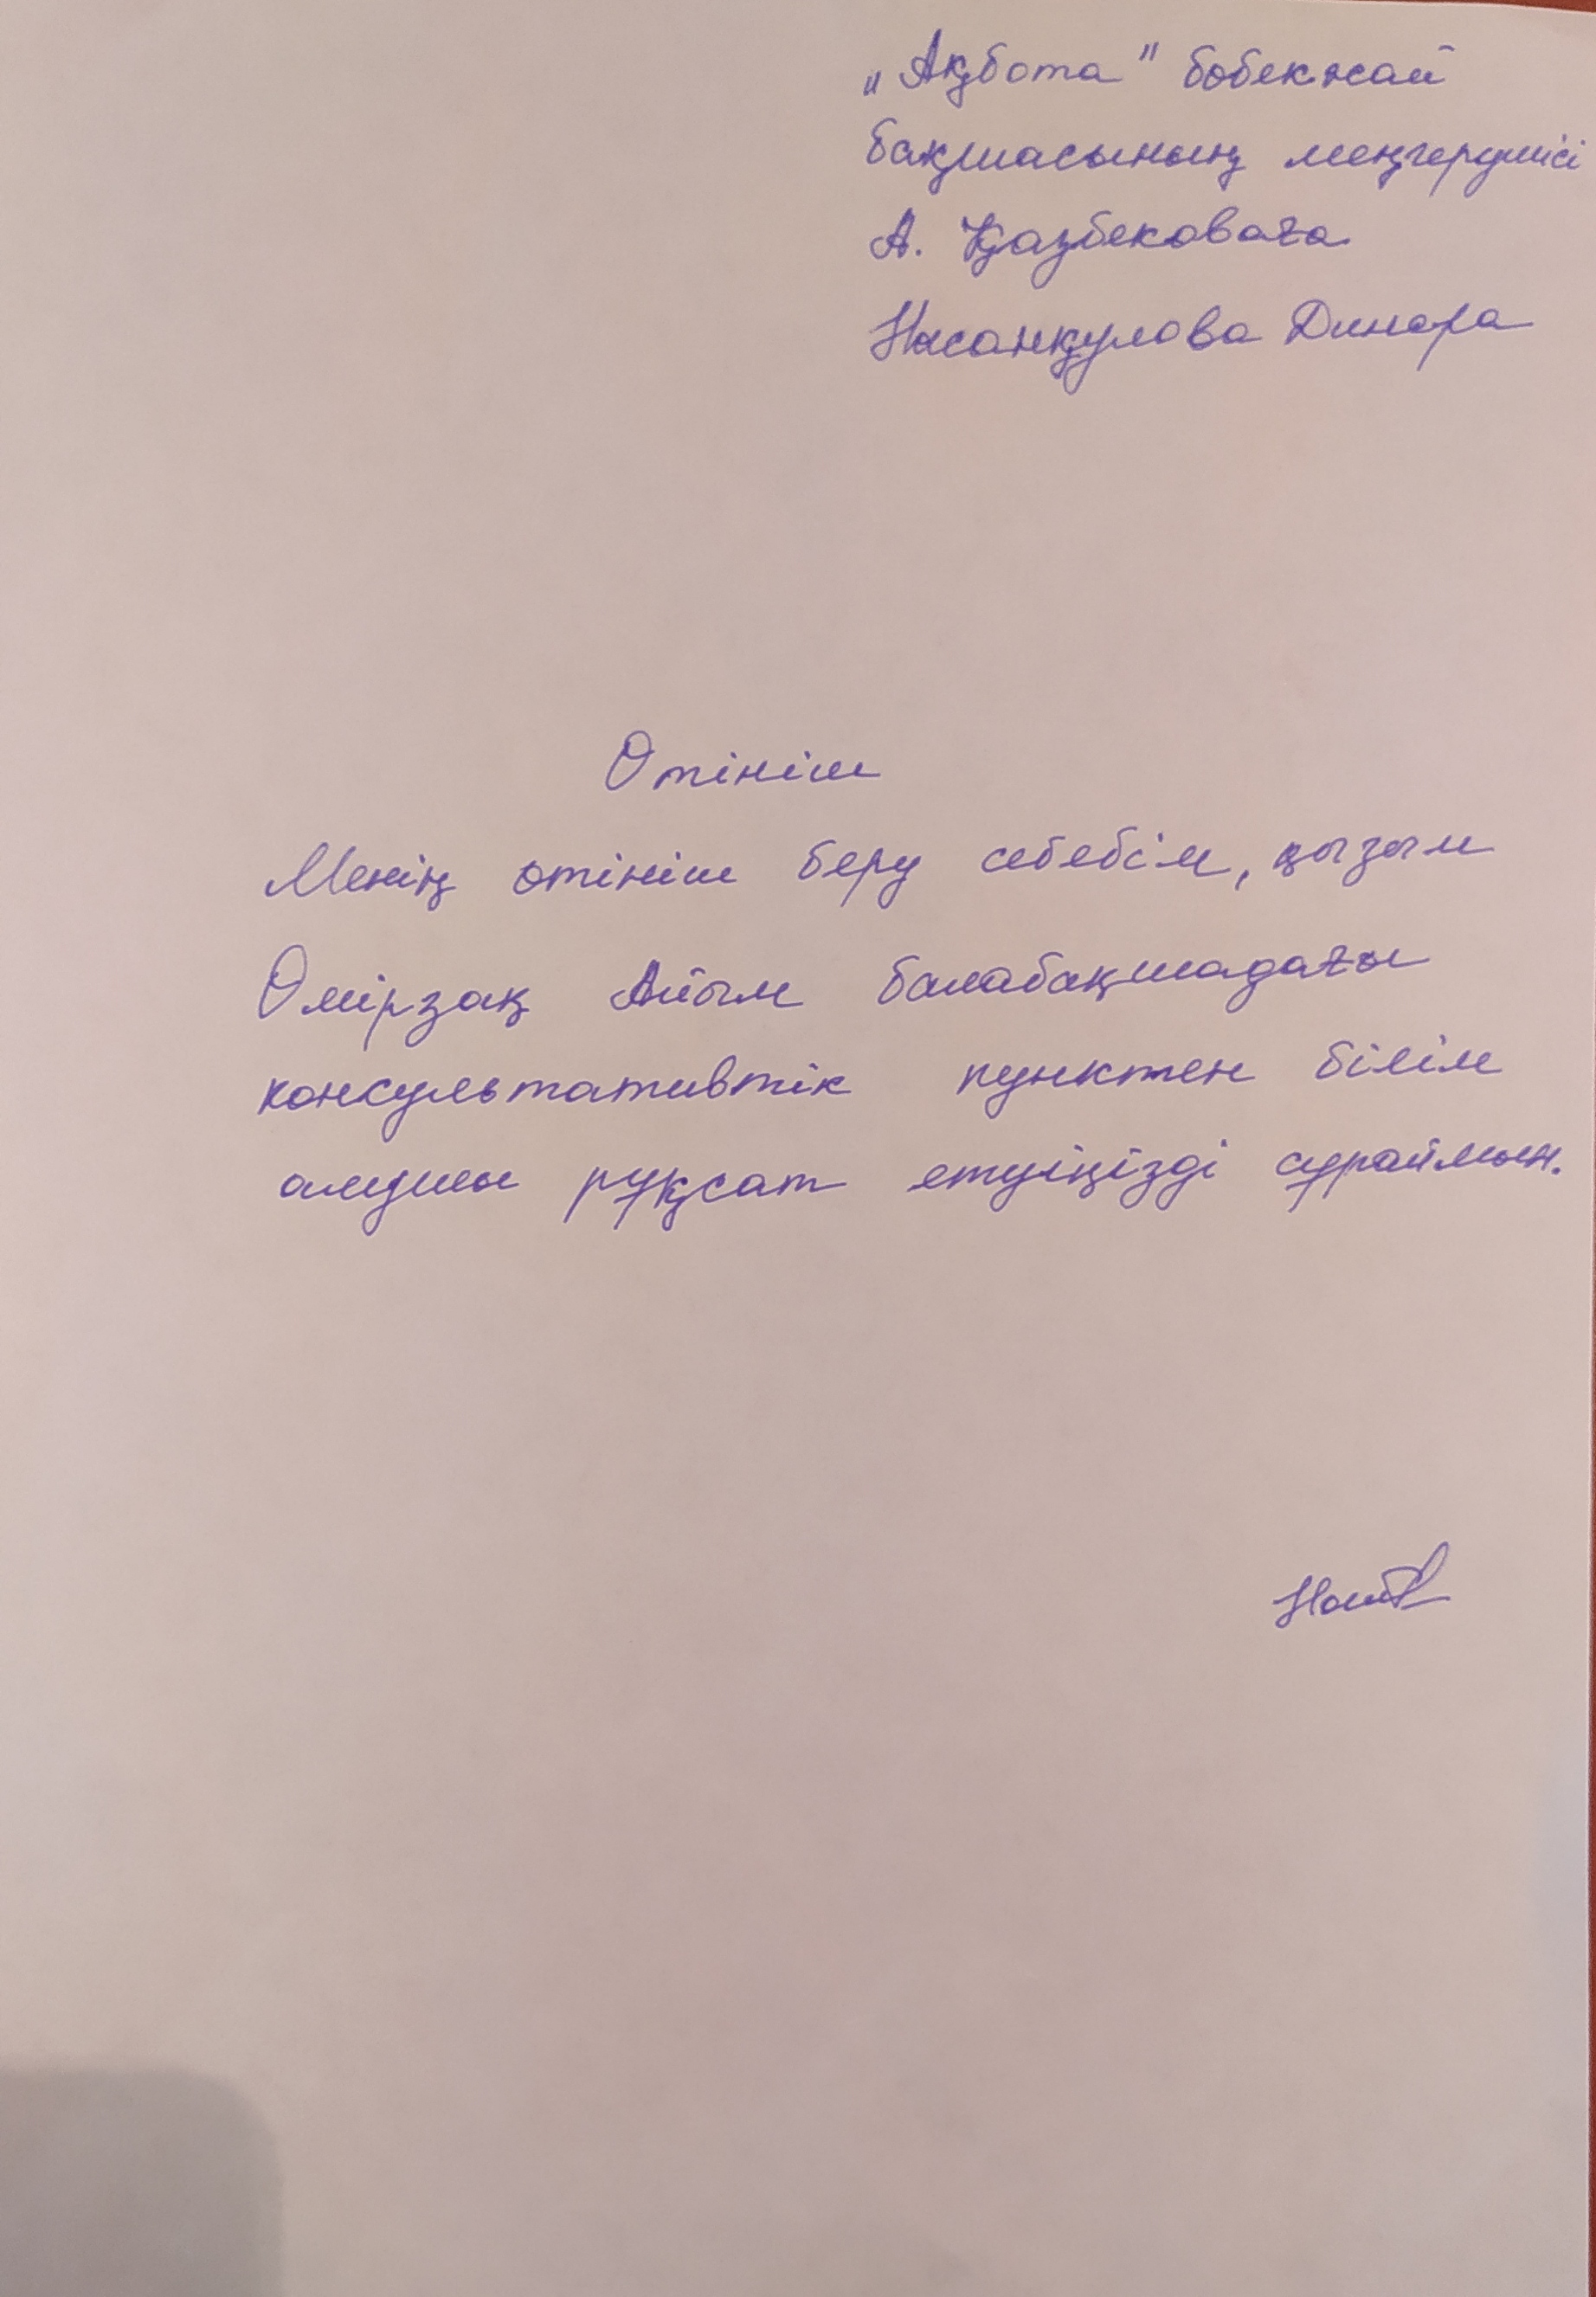 „Ақбота" бөбекжай
бақшасының меңгерушісі
А. Қазбековаға
Нысанқулова Динара
Өтініш
Менің өтініш беру себебім, қызым
Өмірзақ Айым балабақшадағы
консультативтік пунктен білім
алуына рұқсат етуіңізді сұраймын.